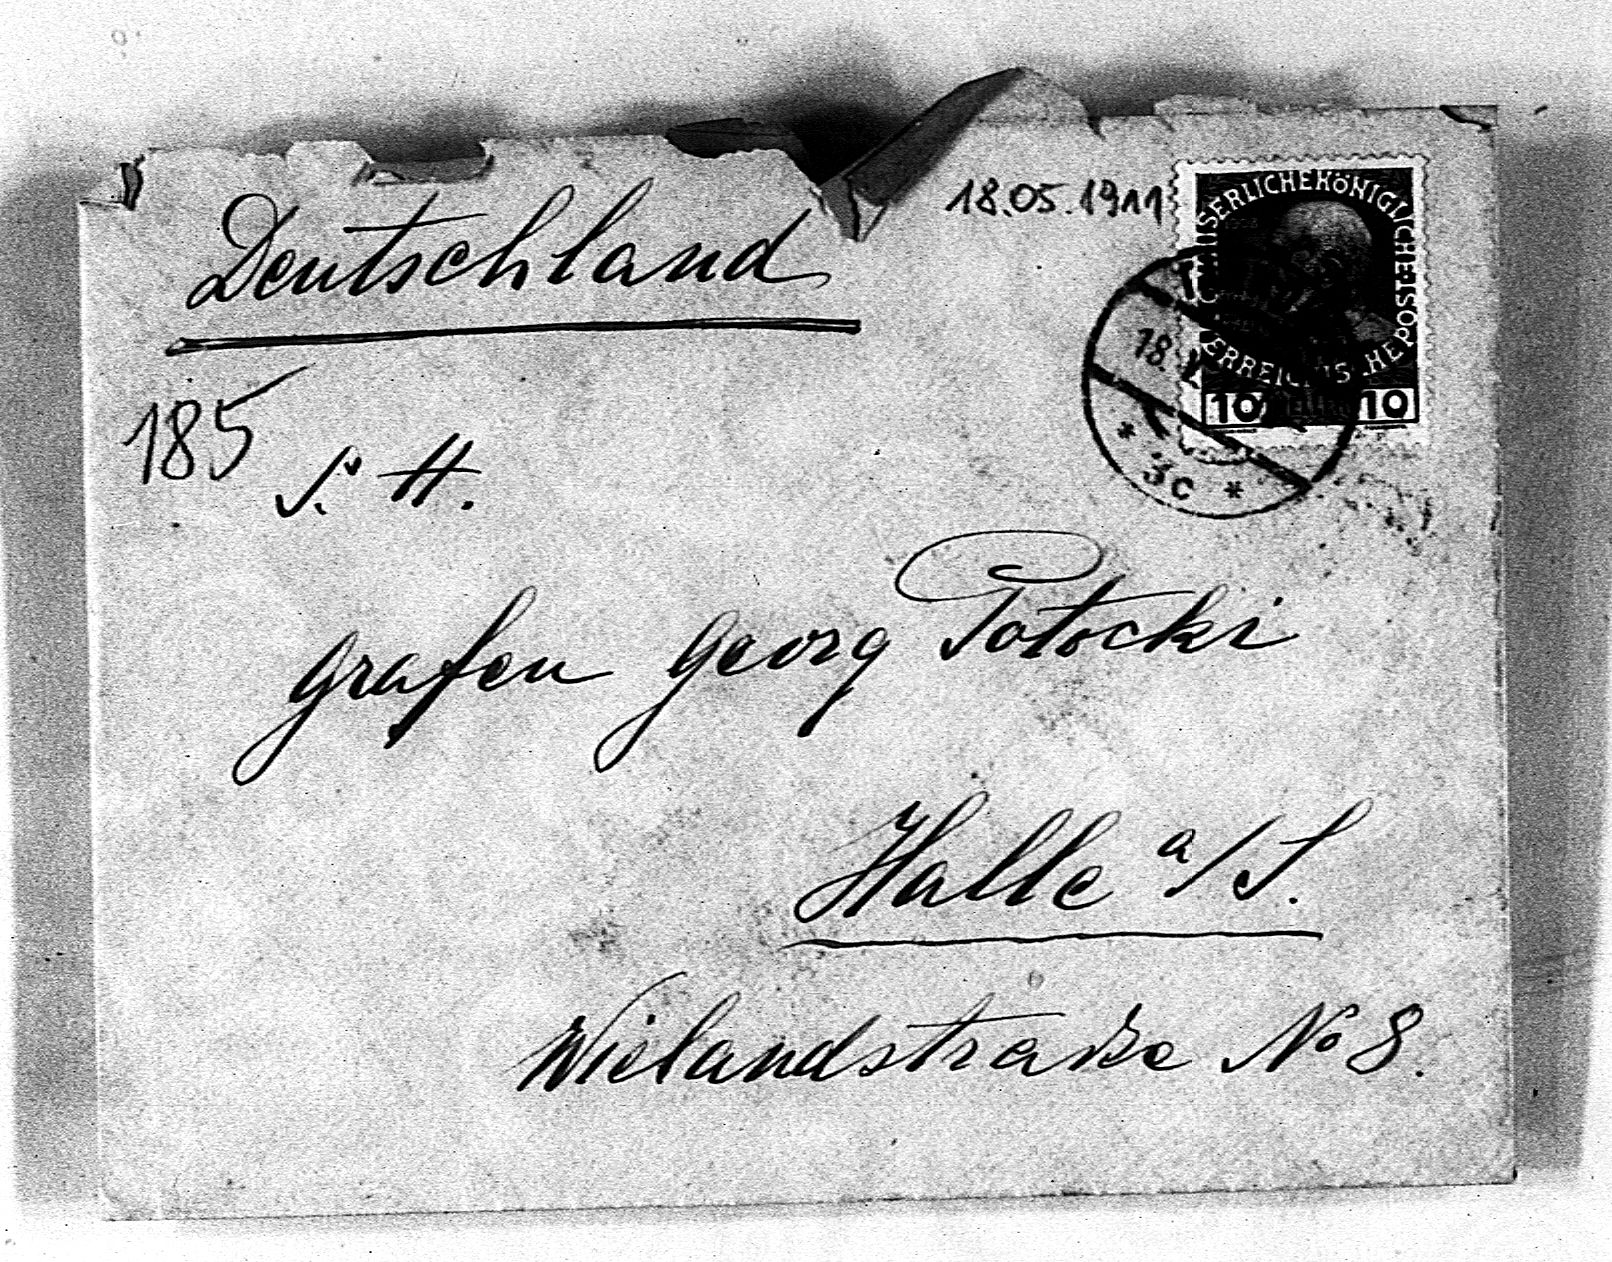 Deutschland
18.05.1911
KAISERLICHEKÖNIGLICHE
POST
10 10
18. V
* 3c *
185
S. H.
Grafen Georg Potocki
Halle a/S.
Wielandstraße No 8.